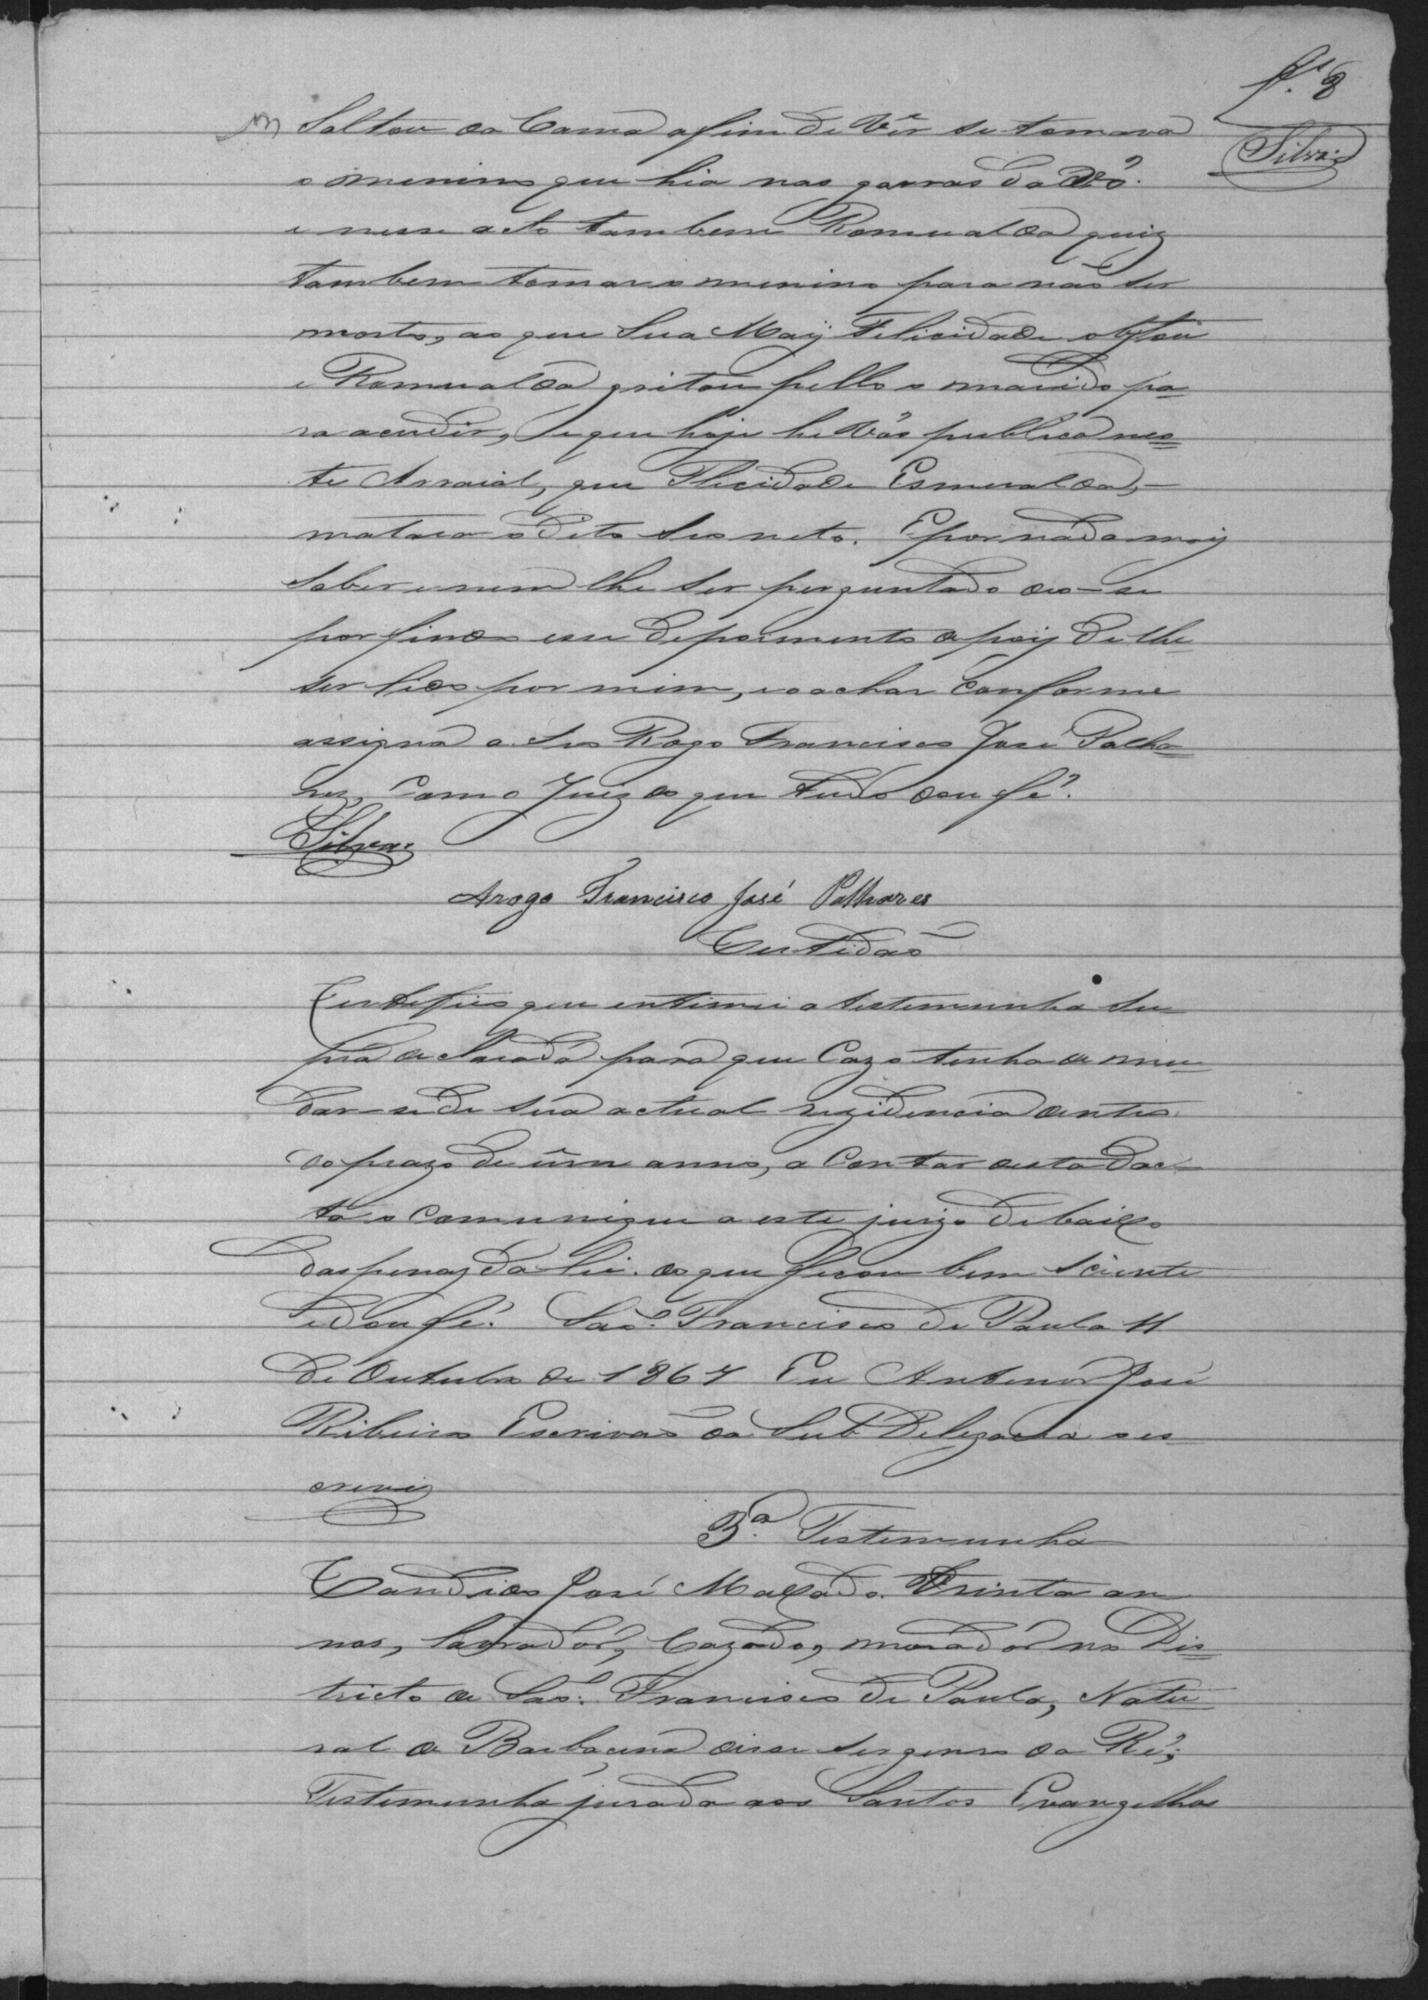 fs. 8
Silva
Saltou da Cama afim de Vêr se tomava
o menino que hia nas garras da Vó.
e nesse acto tambem Romualda quiz
tambem tomar o menino para não ser
morto, ao que Sua Maÿ Felicidade obstou
e Romualda gritou pello o marido pa=
ra acudir, e que hoje he Vós publica nes=
te Arraial, que Flicidade Esmeralda,
matara o dito seo neto. E por nada mais
saber e nem lhe ser perguntado deo-se
por findo esse depoimento depois de lhe
ser lido por mim, e o achar Conforme
assigna a seo Rogo Francisco José Palha=
res, Com o Juiz do que tudo dou fé.
Silva.
Arogo Francisco José Palhares
Certidão
Certefico que entimei a testemunha su
pra declarada para que Cazo tenha de mu=
dar-se de sua actual rezidencia antes
do prazo de ûm anno, a Contar desta dac
ta o Comunique a este juizo debaixo
das penas da Lei. do que ficou bem sciente
e dou fé. São Francisco de Paula 11
de Outubro de 1867 Eu Antenor José
Ribeiro Escrivão da Sub Delegacia o es=
crevi
3ª Testemunha
Candido José Maxado. Trinta an
nos, Lavrador, Cazado, morador no Dis=
tricto de São Francisco de Paula, Natu=
ral de Barbacena disse ser genro da Ré;
Testemunha jurada aos Santos Evangelhos